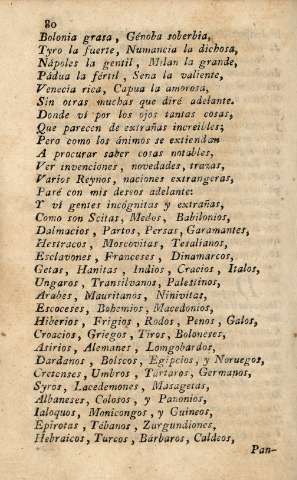 80
Bolonia grasa, Génoba soberbia,
Tyro la fuerte, Numancia la dichosa,
Nápoles la gentil, Milan la grande,
Pádua la fértil, Sena la valiente,
Venecia rica, Capua la amorosa,
Sin otras muchas que diré adelante.
Donde ví por los ojos tantas cosas,
Que parecen de extrañas increibles;
Pero como los ánimos se extiendan
A procurar saber cosas notables,
Ver invenciones, novedades, trazas,
Varios Reynos, naciones extrangeras,
Paré con mis deseos adelante:
Y ví gentes incógnitas y extrañas,
Como son Scitas, Medos, Babilonios,
Dalmacios, Partos, Persas, Garamantes,
Hestracos, Moscovitas, Tesalianos,
Esclavones, Franceses, Dinamarcos,
Getas, Hanitas, Indios, Cracios, Italos,
Ungaros, Transilvanos, Palestinos,
Arabes, Mauritanos, Ninivitas,
Escoceses, Bohemios, Macedonios,
Hiberios, Frigios, Rodos, Penos, Galos,
Croacios, Griegos, Tiros, Boloneses,
Asirios, Alemanes, Longobardos,
Dardanos, Bolscos, Egipcios, y Noruegos,
Cretenses, Umbros, Tártaros, Germanos,
Syros, Lacedemones, Masagetas,
Albaneses, Colosos, y Panonios,
Ialoquos, Monicongos, y Guineos,
Epirotas, Tébanos, Zurgundiones,
Hebraicos, Turcos, Bárbaros, Caldeos,
Pan-